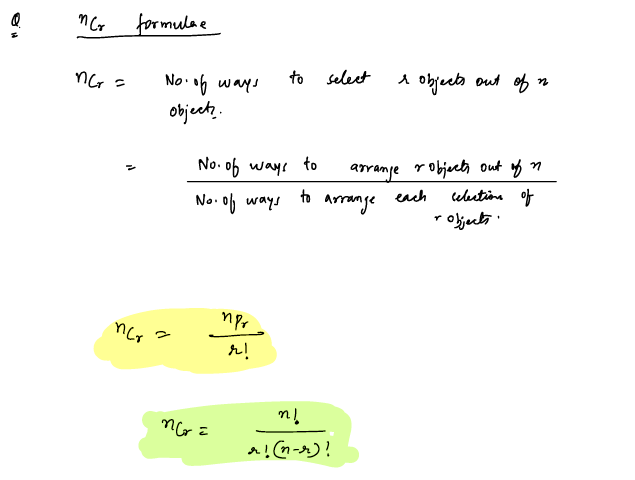 Q. nCr formulae
nCr = No. of ways to select r objects out of n
objects.
= No. of ways to arrange r objects out of n
No. of ways to arrange each selection of
r objects.
nCr = nPr
r!
nCr = n!
r!(n-r)!